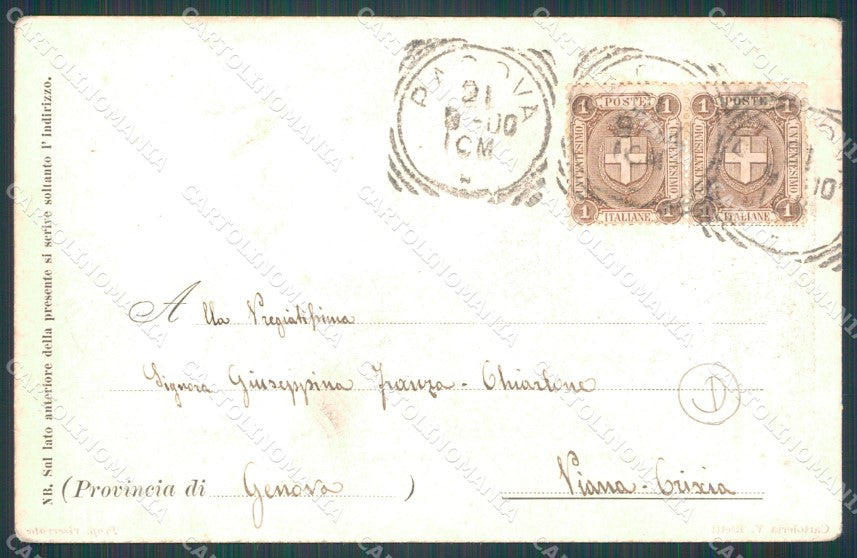 NB. Sul lato anteriore della presente si scrive soltanto l'indirizzo.
PADOVA
21
9-00
CM
1 POSTE 1
UN CENTESIMO
UN CENTESIMO
1 ITALIANE 1
1 POSTE 1
UN CENTESIMO
UN CENTESIMO
1 ITALIANE 1
Alla Pregiatissima
Signora Giuseppina Franza-Chiarlone
(Provincia di Genova)
Piana-Crixia
Prop. riservata
Cartoleria V.
CARTOLINOMANIA